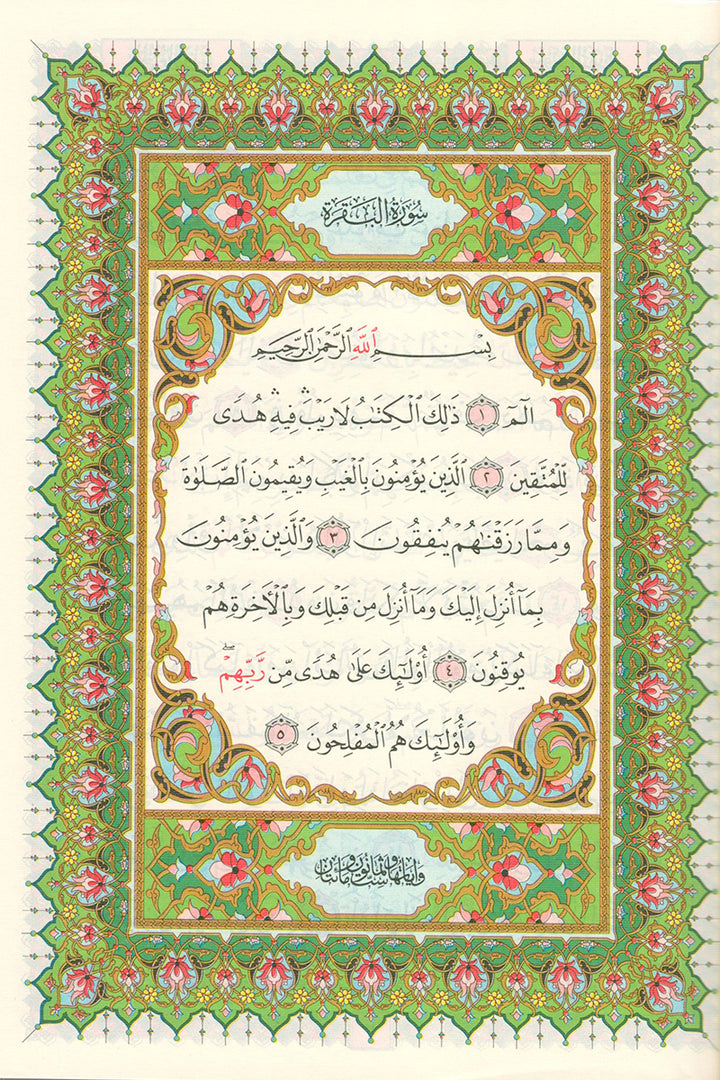 سُورَةُ البَقَرَةِ
بِسْمِ ٱللَّهِ ٱلرَّحْمَٰنِ ٱلرَّحِيمِ
الٓمٓ ١ ذَٰلِكَ ٱلْكِتَٰبُ لَا رَيْبَ ۛ فِيهِ ۛ هُدًى
لِّلْمُتَّقِينَ ٢ ٱلَّذِينَ يُؤْمِنُونَ بِٱلْغَيْبِ وَيُقِيمُونَ ٱلصَّلَوٰةَ
وَمِمَّا رَزَقْنَٰهُمْ يُنفِقُونَ ٣ وَٱلَّذِينَ يُؤْمِنُونَ
بِمَآ أُنزِلَ إِلَيْكَ وَمَآ أُنزِلَ مِن قَبْلِكَ وَبِٱلْأَخِرَةِ هُمْ
يُوقِنُونَ ٤ أُو۟لَٰٓئِكَ عَلَىٰ هُدًى مِّن رَّبِّهِمْ ۖ
وَأُو۟لَٰٓئِكَ هُمُ ٱلْمُفْلِحُونَ ٥
وَآيَاتُهَا سِتٌّ وَثَمَانُونَ وَمِائَتَانِ